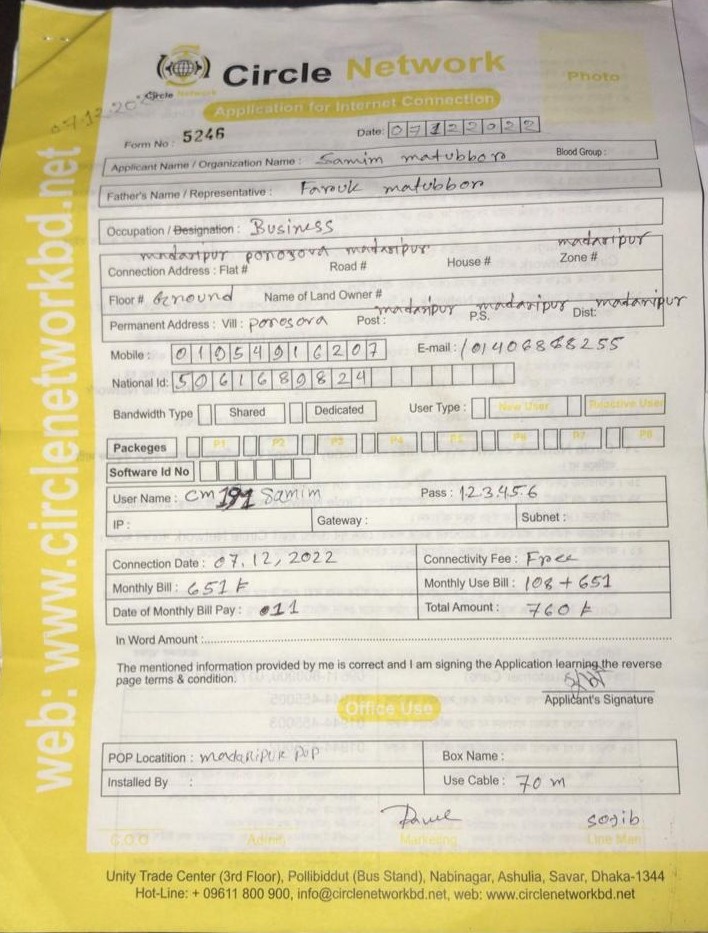 Circle Network
Circle Network
Photo
Application for Internet Connection
07-12-20
Form No : 5246
Date: 07122022
Applicant Name / Organization Name : Samim matubbor
Blood Group :
Father's Name / Representative : Farouk matubbor
Occupation / Designation : Business
madaripur porosova madaripur madaripur
Connection Address : Flat # Road # House # Zone #
Floor # Ground Name of Land Owner #
Permanent Address : Vill : porosova Post : madaripur P.S. madaripur Dist: madaripur
Mobile : 01954916207 E-mail : /01406868255
National Id: 5061689824
Bandwidth Type Shared Dedicated User Type : New User Reactive User
Packeges P1 P2 P3 P4 P5 P6 P7 P8
Software Id No
User Name : cm191 Samim Pass : 123456
IP : Gateway : Subnet :
Connection Date : 07,12,2022 Connectivity Fee : Free
Monthly Bill : 651 Monthly Use Bill : 108+651
Date of Monthly Bill Pay : 011 Total Amount : 760
In Word Amount :
The mentioned information provided by me is correct and I am signing the Application learning the reverse
page terms & condition.
Applicant's Signature
Office Use
POP Locatition : madaripur pop Box Name :
Installed By : Use Cable : 70 m
sojib
C.O.O Admin Marketing Line Man
Unity Trade Center (3rd Floor), Pollibiddut (Bus Stand), Nabinagar, Ashulia, Savar, Dhaka-1344
Hot-Line: + 09611 800 900, info@circlenetworkbd.net, web: www.circlenetworkbd.net
web: www.circlenetworkbd.net